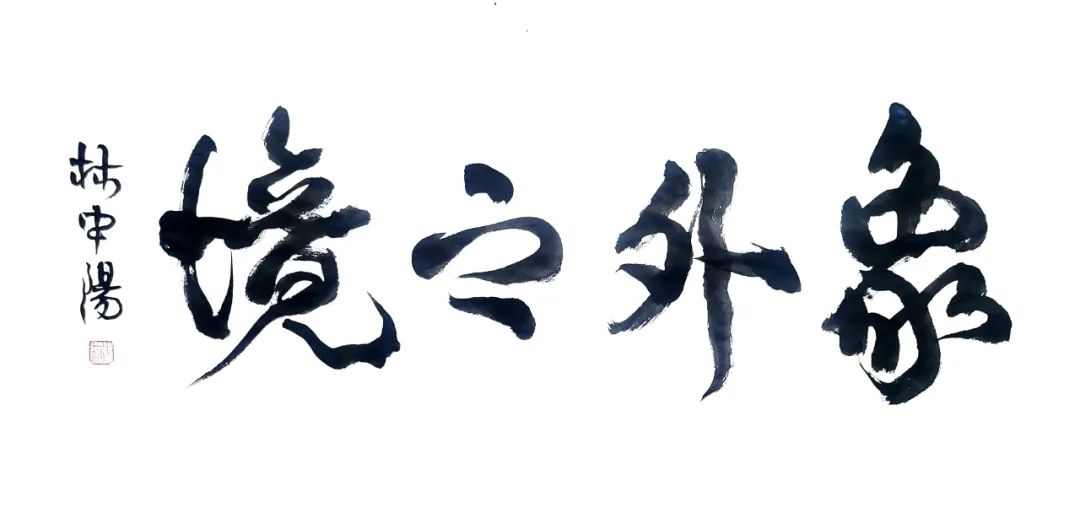 象外之境
林中陽